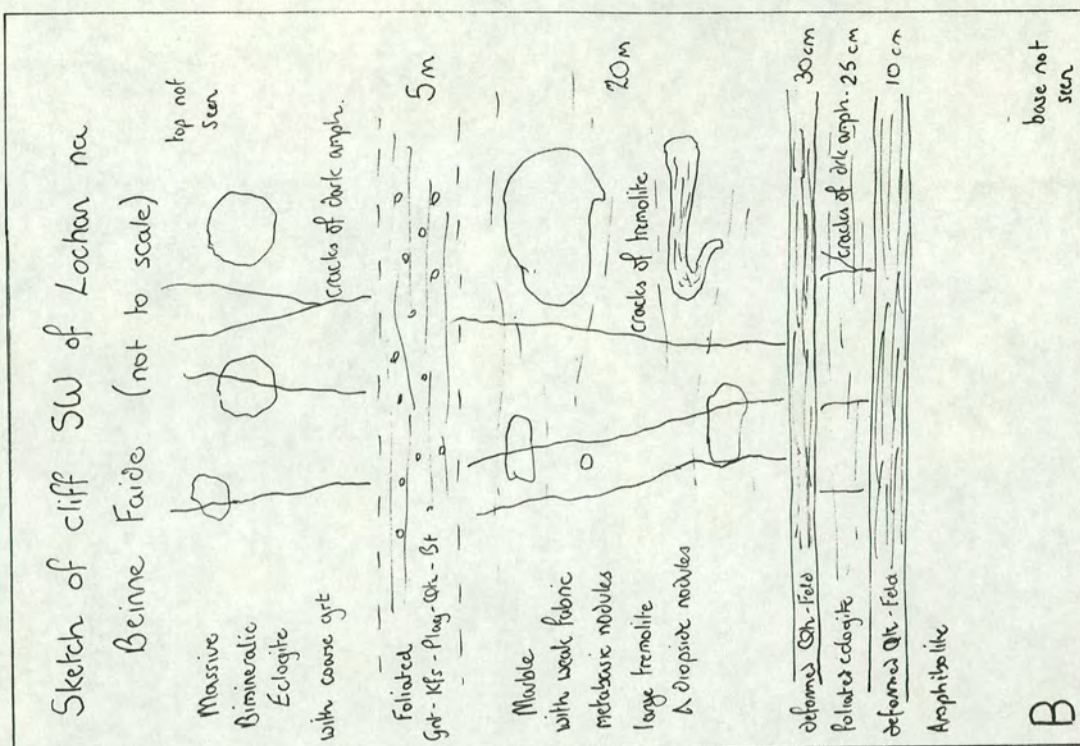 Sketch of cliff SW of Lochan na
Beinne Faide (not to scale)
top not
seen
Massive
Bimineralic
Eclogite
with coarse grt
cracks of dark amph.
Foliated
Grt-Kfs-Plag-Qtz-Bt
5m
Marble
with weak fabric
metabasic nodules
large tremolite
& diopside nodules
cracks of tremolite
20m
deformed Qtz-Feld
30cm
foliated eclogite
cracks of dark amph.
25 cm
deformed Qtz-Feld
10 cm
Amphibolite
base not
seen
B